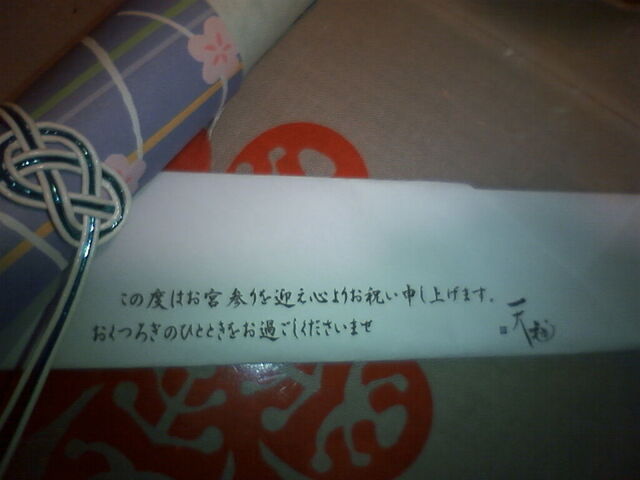 この度はお宮参りを迎え心よりお祝い申し上げます。
おくつろぎのひとときをお過ごしくださいませ